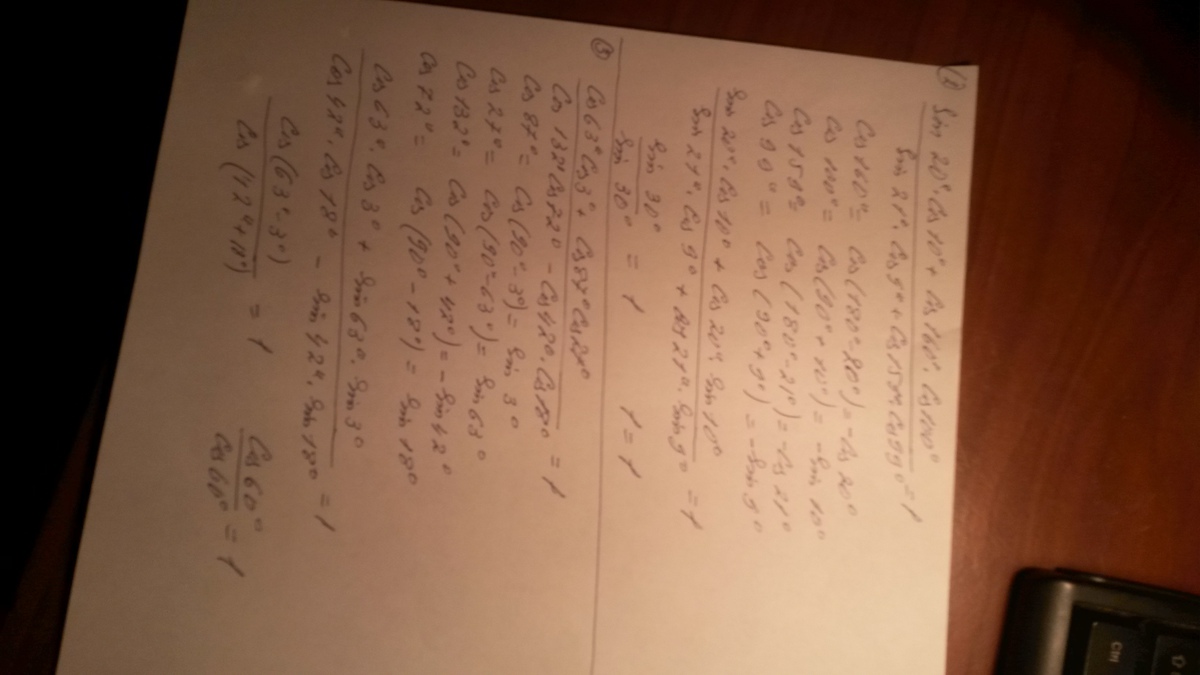 ① Sin 20°·Cos 10° + Cos 160°·Cos 100°
Sin 21°·Cos 9° + Cos 159° Cos 99° = 1
Cos 160° = Cos (180°-20°) = -Cos 20°
Cos 100° = Cos (90° + 10°) = -Sin 10°
Cos 159° = Cos (180° - 21°) = -Cos 21°
Cos 99° = Cos (90° + 9°) = -Sin 9°
Sin 20°·Cos 10° + Cos 20°·Sin 10°
Sin 21°·Cos 9° + Cos 21°·Sin 9° = 1
Sin 30°
Sin 30° = 1 1 = 1
③ Cos 63° Cos 3° + Cos 87° Cos 27°
Cos 132° Cos 72° - Cos 42°·Cos 18° = 1
Cos 87° = Cos (90° - 3°) = Sin 3°
Cos 27° = Cos (90° - 63°) = Sin 63°
Cos 132° = Cos (90° + 42°) = -Sin 42°
Cos 72° = Cos (90° - 18°) = Sin 18°
Cos 63°·Cos 3° + Sin 63°·Sin 3°
Cos 42°·Cos 18° - Sin 42°·Sin 18° = 1
Cos (63° - 3°)
Cos (42° + 18°) = 1
Cos 60°
Cos 60° = 1
Ctrl